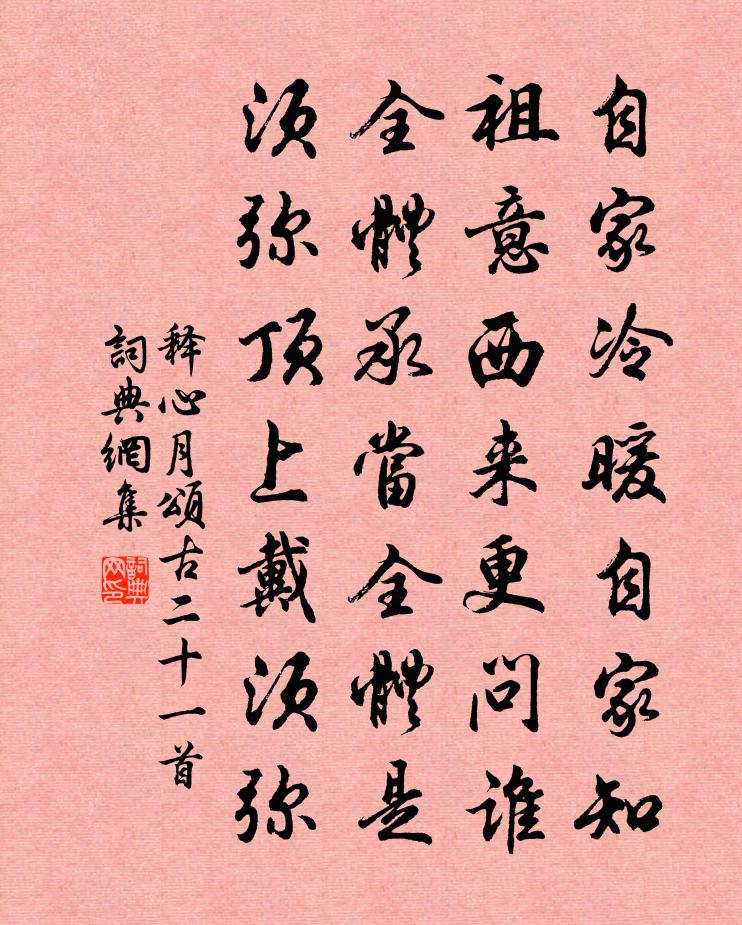 自家冷暖自家知
祖意西来更问谁
全體承當全體是
须弥顶上戴须弥
释心月頌古二十一首
詞典網集
詞典
网印